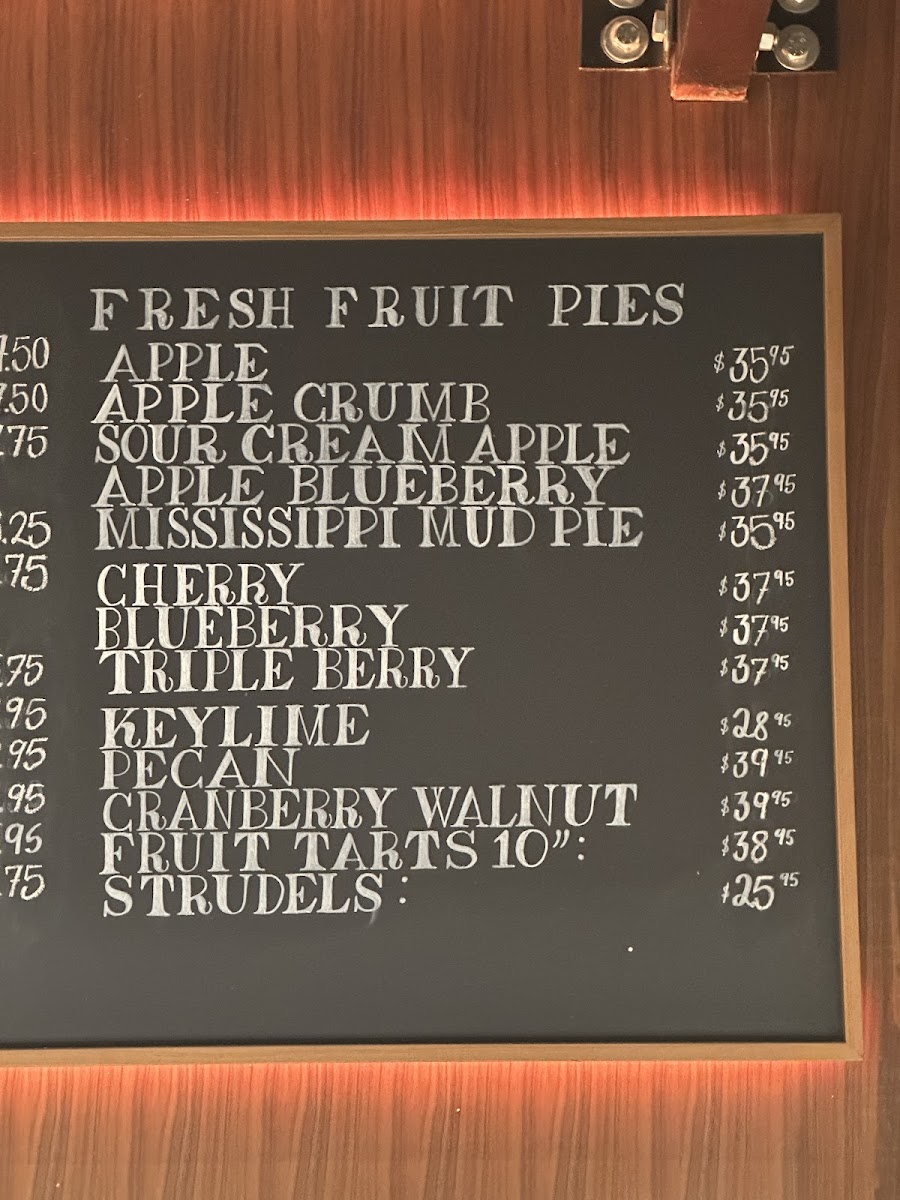 FRESH FRUIT PIES
APPLE $35.95
APPLE CRUMB $35.95
SOUR CREAM APPLE $35.95
APPLE BLUEBERRY $37.95
MISSISSIPPI MUD PIE $35.95
CHERRY $37.95
BLUEBERRY $37.95
TRIPLE BERRY $37.95
KEYLIME $28.95
PECAN $39.95
CRANBERRY WALNUT $39.95
FRUIT TARTS 10": $38.95
STRUDELS: $25.95
.50
.50
.75
.25
75
.75
.95
.95
.95
.95
.75